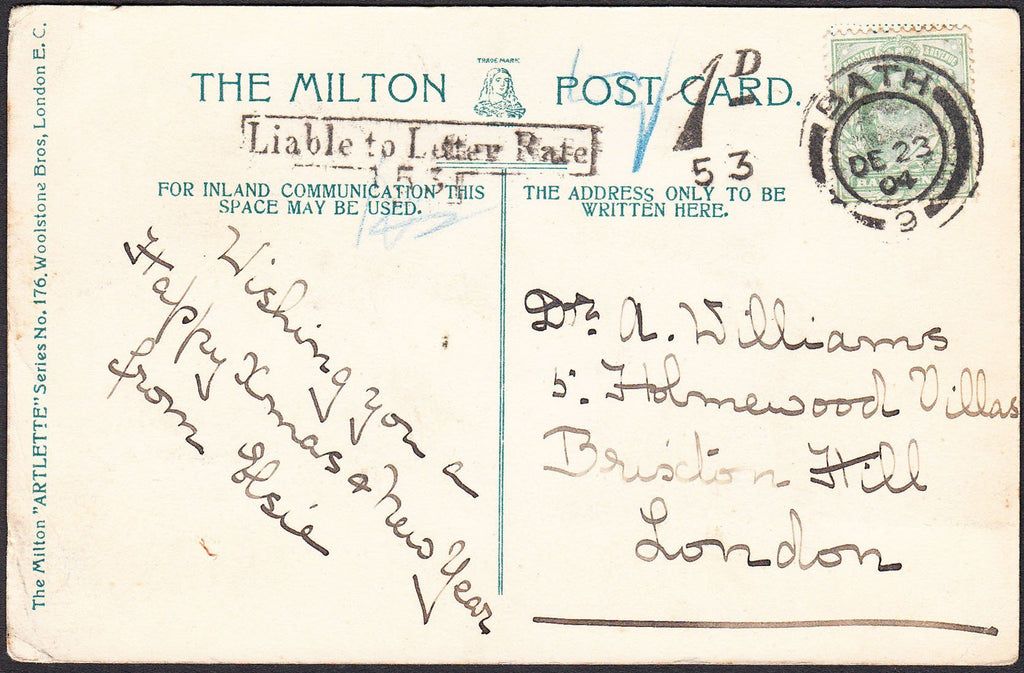 The Milton "ARTLETTE" Series No. 176. Woolstone Bros, London E.C.
THE MILTON
TRADE MARK
POST CARD.
1D
53
Liable to Letter Rate
BATH
DE 23
04
3
FOR INLAND COMMUNICATION THIS
SPACE MAY BE USED.
THE ADDRESS ONLY TO BE
WRITTEN HERE.
Wishing you a
Happy Xmas & New Year
from Elsie
Dr. A. Williams
5. Holmewood Villas
Brixton Hill
London